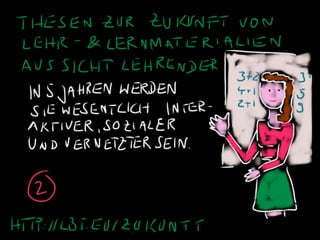 THESEN ZUR ZUKUNFT VON
LEHR- & LERNMATERIALIEN
AUS SICHT LEHRENDER
IN 5 JAHREN WERDEN
SIE WESENTLICH INTER-
AKTIVER, SOZIALER
UND VERNETZTER SEIN.
2
3+2 3
4+1 5
2+1 9
HTTP://L3T.EU/ZUKUNFT